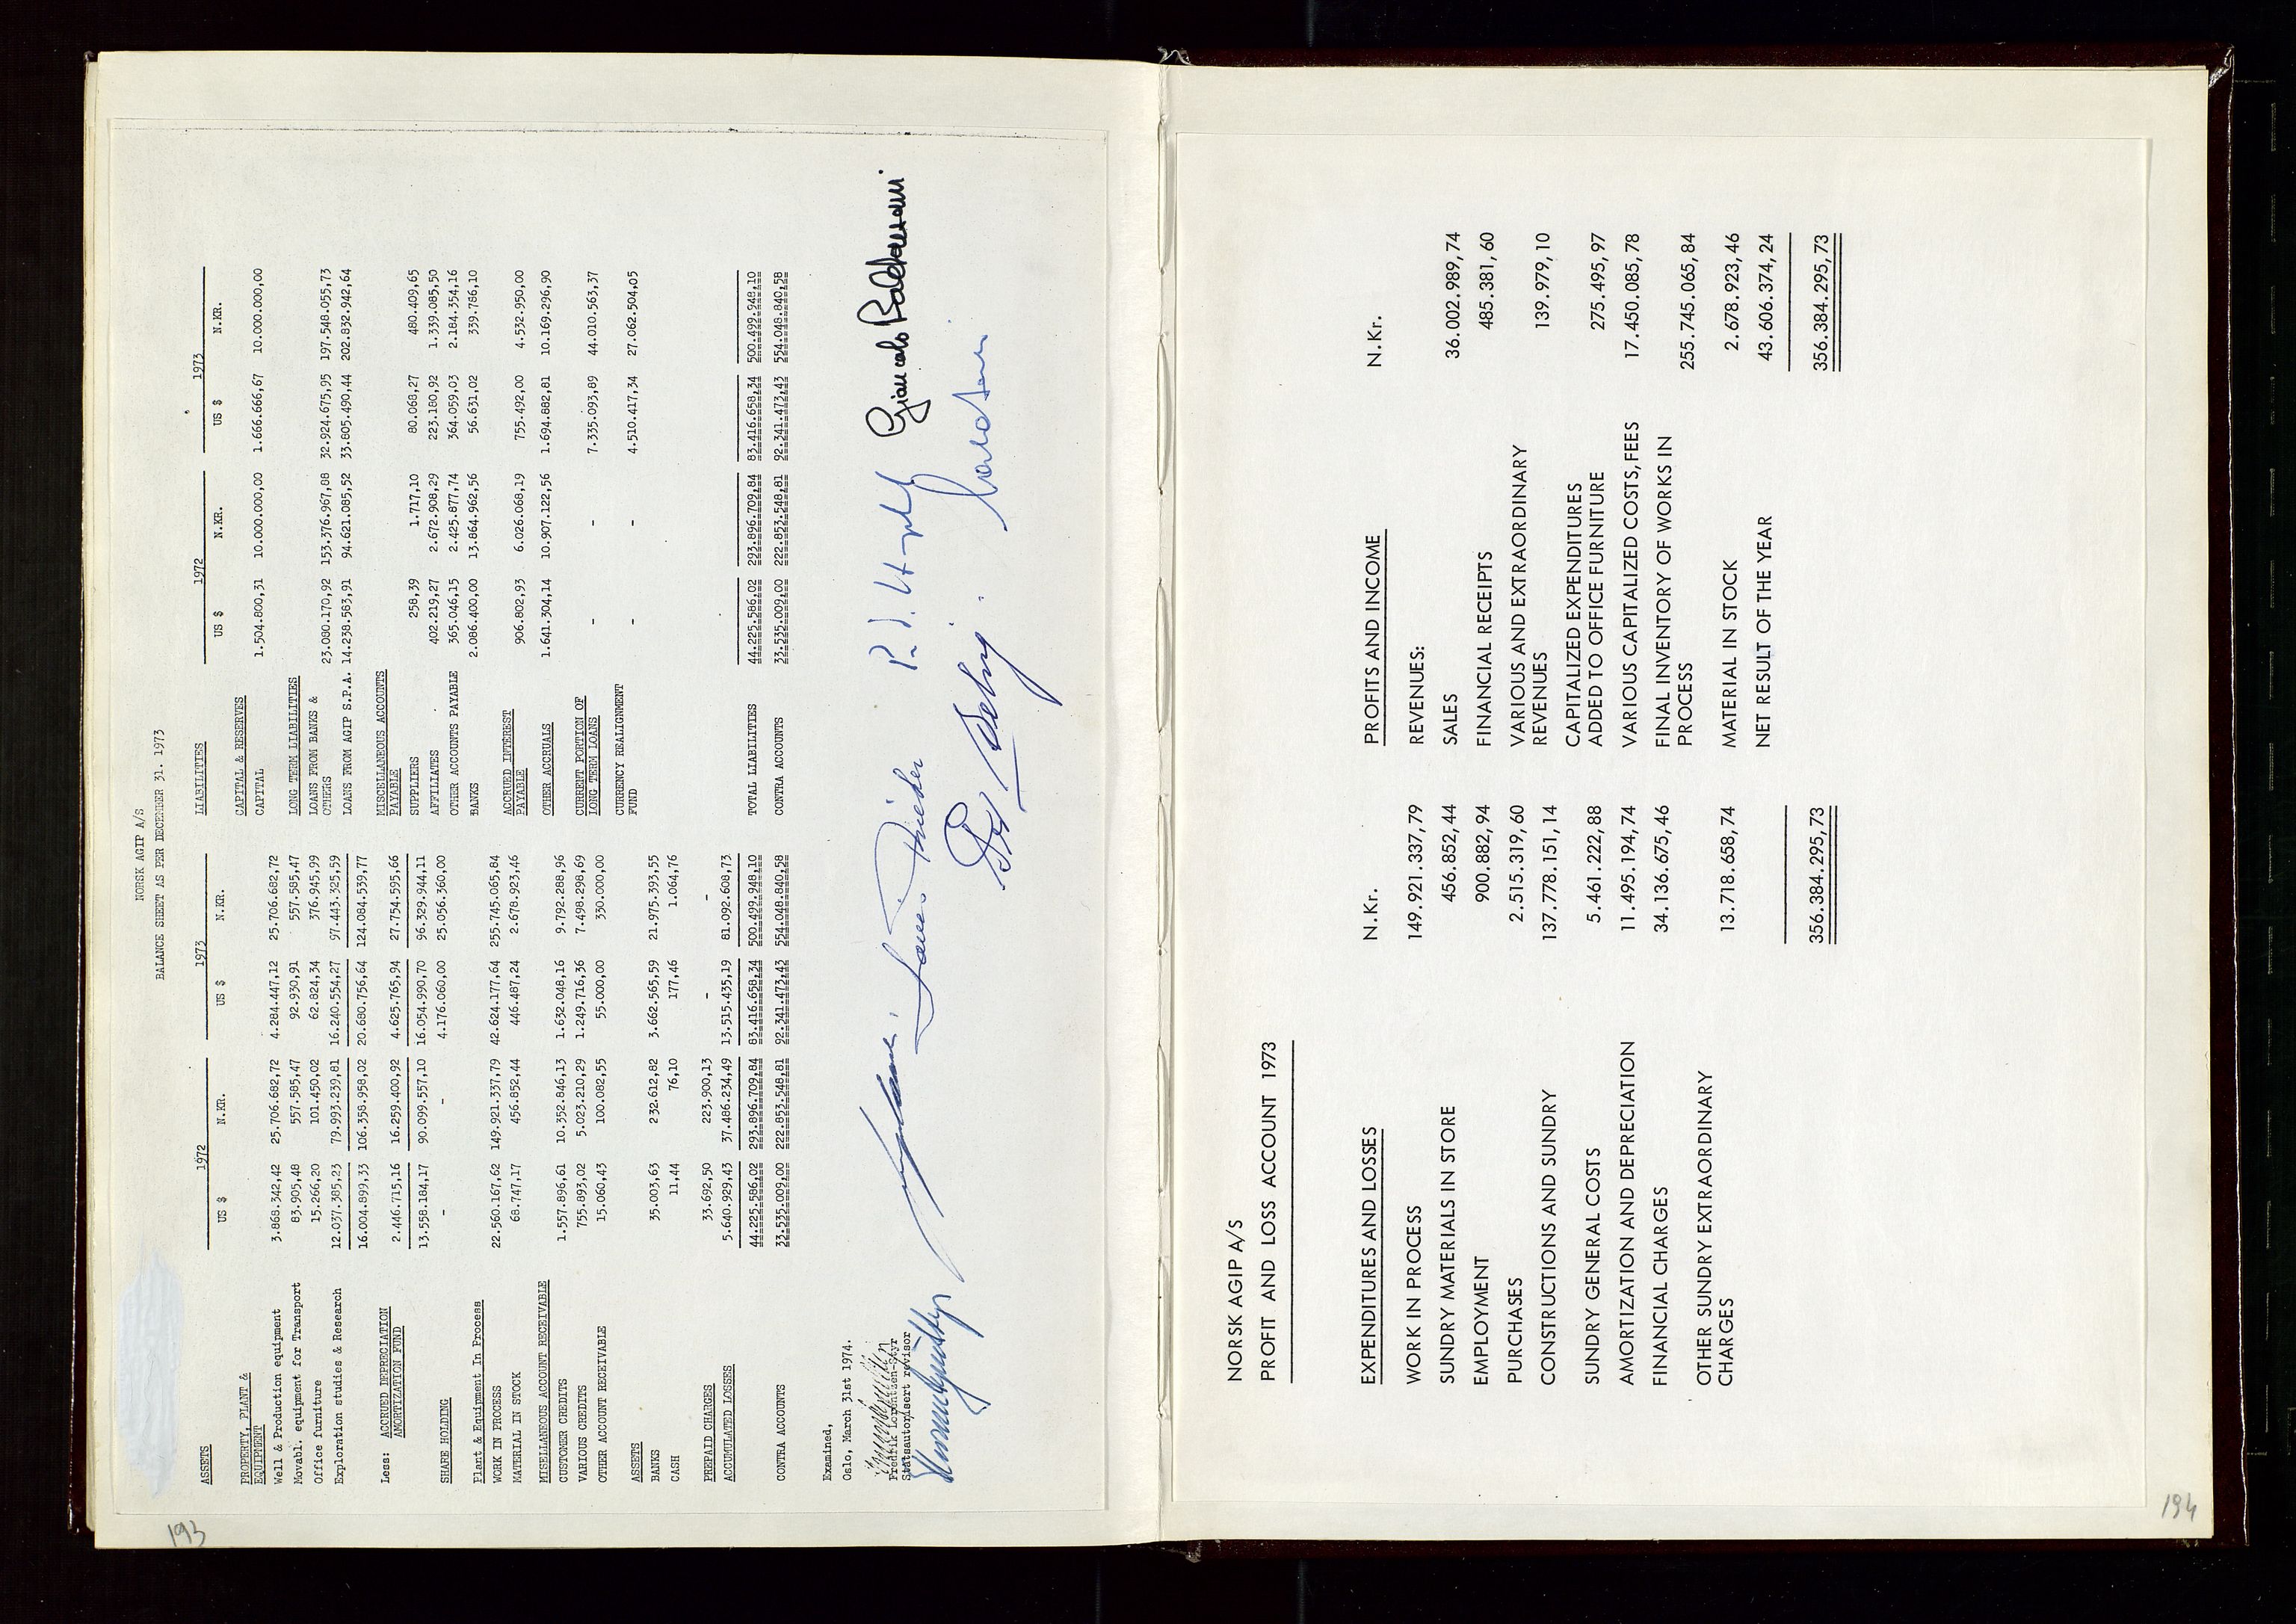 193
NORSK AGIP A/S
BALANCE SHEET AS PER DECEMBER 31. 1973
ASSETS 1972 1973 LIABILITIES 1972 1973
US $ N.KR. US $ N.KR. US $ N.KR. US $ N.KR.
PROPERTY, PLANT &
EQUIPMENT
CAPITAL & RESERVES
Well & Production equipment 3.868.342,42 25.706.682,72 4.284.447,12 25.706.682,72
CAPITAL 1.504.800,31 10.000.000,00 1.666.666,67 10.000.000,00
Movabl. equipment for Transport 83.905,48 557.585,47 92.930,91 557.585,47
LONG TERM LIABILITIES
Office furniture 15.266,20 101.450,02 62.824,34 376.945,99
LOANS FROM BANKS &
OTHERS 23.080.170,92 153.376.967,88 32.924.675,95 197.548.055,73
Exploration studies & Research 12.037.385,23 79.993.239,81 16.240.554,27 97.443.325,59
LOANS FROM AGIP S.P.A. 14.238.563,91 94.621.085,52 33.805.490,44 202.832.942,64
16.004.899,33 106.358.958,02 20.680.756,64 124.084.539,77
Less: ACCRUED DEPRECIATION
AMORTIZATION FUND 2.446.715,16 16.259.400,92 4.625.765,94 27.754.595,66
MISCELLANEOUS ACCOUNTS
PAYABLE
13.558.184,17 90.099.557,10 16.054.990,70 96.329.944,11
SUPPLIERS 258,39 1.717,10 80.068,27 480.409,65
SHARE HOLDING - - 4.176.060,00 25.056.360,00
AFFILIATES 402.219,27 2.672.908,29 223.180,92 1.339.085,50
OTHER ACCOUNTS PAYABLE 365.046,15 2.425.877,74 364.059,03 2.184.354,16
Plant & Equipment In Process
BANKS 2.086.400,00 13.864.962,56 56.631,02 339.786,10
WORK IN PROCESS 22.560.167,62 149.921.337,79 42.624.177,64 255.745.065,84
MATERIAL IN STOCK 68.747,17 456.852,44 446.487,24 2.678.923,46
ACCRUED INTEREST
PAYABLE 906.802,93 6.026.068,19 755.492,00 4.532.950,00
MISELLANEOUS ACCOUNT RECEIVABLE
OTHER ACCRUALS 1.641.304,14 10.907.122,56 1.694.882,81 10.169.296,90
CUSTOMER CREDITS 1.557.896,61 10.352.846,13 1.632.048,16 9.792.288,96
VARIOUS CREDITS 755.893,02 5.023.210,29 1.249.716,36 7.498.298,69
CURRENT PORTION OF
LONG TERM LOANS - - 7.335.093,89 44.010.563,37
OTHER ACCOUNT RECEIVABLE 15.060,43 100.082,55 55.000,00 330.000,00
CURRENCY REALIGNMENT
FUND - - 4.510.417,34 27.062.504,05
ASSETS
BANKS 35.003,63 232.612,82 3.662.565,59 21.975.393,55
CASH 11,44 76,10 177,46 1.064,76
PREPAID CHARGES 33.692,50 223.900,13 - -
ACCUMULATED LOSSES 5.640.929,43 37.486.234,49 13.515.435,19 81.092.608,73
44.225.586,02 293.896.709,84 83.416.658,34 500.499.948,10
TOTAL LIABILITIES 44.225.586,02 293.896.709,84 83.416.658,34 500.499.948,10
CONTRA ACCOUNTS 33.535.009,00 222.853.548,81 92.341.473,43 554.048.840,58
CONTRA ACCOUNTS 33.535.009,00 222.853.548,81 92.341.473,43 554.048.840,58
Examined,
Oslo, March 31st 1974.
Fredrik Lorentzen-Styr
Statsautorisert revisor
Giancarlo Baldassarri
NORSK AGIP A/S
PROFIT AND LOSS ACCOUNT 1973
EXPENDITURES AND LOSSES N.Kr. PROFITS AND INCOME N.Kr.
WORK IN PROCESS 149.921.337,79 REVENUES:
SUNDRY MATERIALS IN STORE 456.852,44 SALES 36.002.989,74
EMPLOYMENT 900.882,94 FINANCIAL RECEIPTS 485.381,60
PURCHASES 2.515.319,60 VARIOUS AND EXTRAORDINARY
CONSTRUCTIONS AND SUNDRY 137.778.151,14 REVENUES 139.979,10
CAPITALIZED EXPENDITURES
SUNDRY GENERAL COSTS 5.461.222,88 ADDED TO OFFICE FURNITURE 275.495,97
AMORTIZATION AND DEPRECIATION 11.495.194,74 VARIOUS CAPITALIZED COSTS, FEES 17.450.085,78
FINANCIAL CHARGES 34.136.675,46 FINAL INVENTORY OF WORKS IN
PROCESS 255.745.065,84
OTHER SUNDRY EXTRAORDINARY
CHARGES 13.718.658,74 MATERIAL IN STOCK 2.678.923,46
NET RESULT OF THE YEAR 43.606.374,24
356.384.295,73 356.384.295,73
194